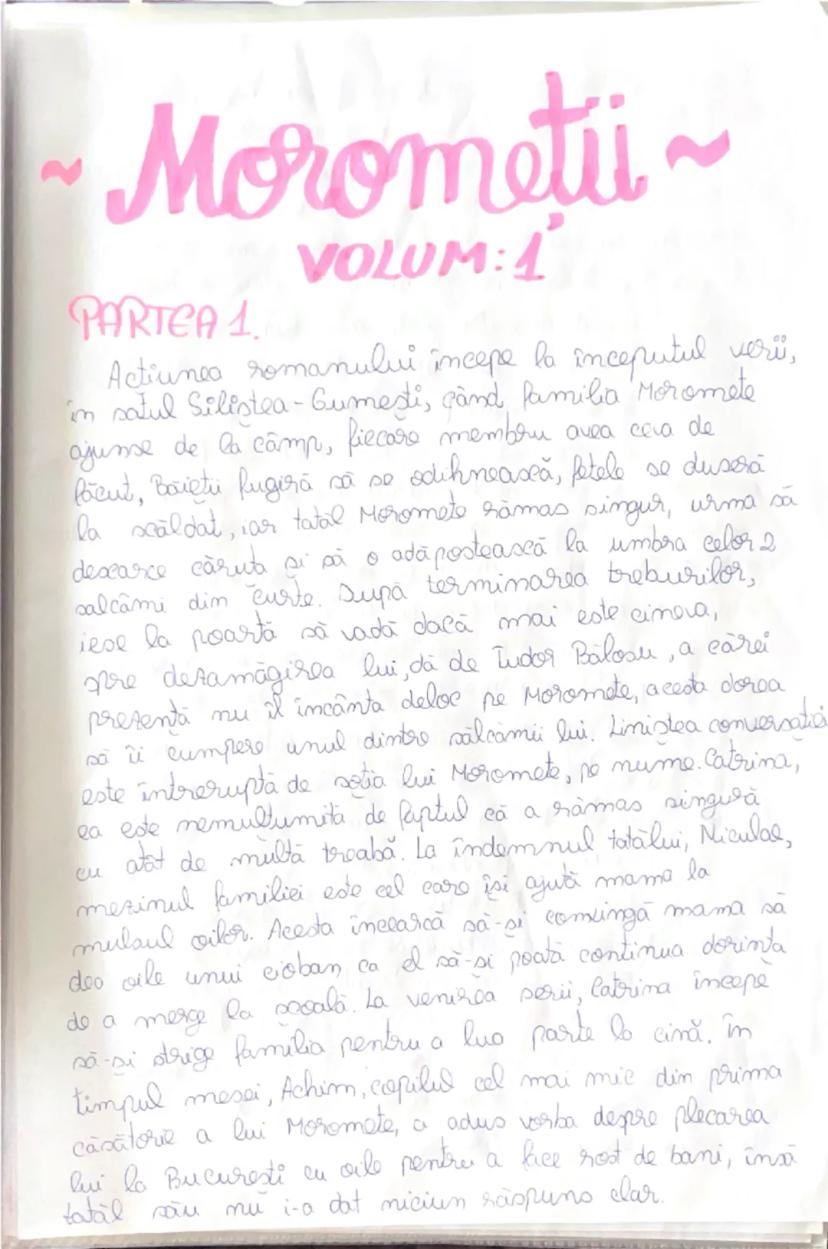 ~ Moromeții ~
VOLUM: 1
PARTEA 1.
Acțiunea romanului începe la începutul verii,
în satul Siliștea-Gumești, când familia Moromete
ajunse de la câmp, fiecare membru avea ceva de
făcut, Băieții fugiră să se odihnească, fetele se duseră
la scăldat, iar tatăl Moromete rămas singur, urma să
descarce căruța și să o adăpostească la umbra celor 2
salcâmi din curte. După terminarea treburilor,
iese la poartă să vadă dacă mai este cineva,
spre dezamăgirea lui, dă de Tudor Bălosu, a cărei
prezență nu îl încânta deloc pe Moromete, acesta dorea
să îi cumpere unul dintre sălcâmii lui. Liniștea conversației
este întreruptă de soția lui Moromete, pe nume Catrina,
ea este nemulțumită de faptul că a rămas singură
cu atât de multă treabă. La îndemnul tatălui, Niculae,
mezinul familiei este cel care își ajută mama la
mulsul oilor. Acesta încearcă să-și convingă mama să
dea oile unui cioban ca el să-si poată continua dorința
de a merge la școală. La venirea serii, Catrina începe
să-și strige familia pentru a lua parte la cină. În
timpul mesei, Achim, copilul cel mai mic din prima
căsătorie a lui Moromete, a adus vorba despre plecarea
lui la București cu oile pentru a face rost de bani, însă
tatăl său nu i-a dat niciun răspuns clar.